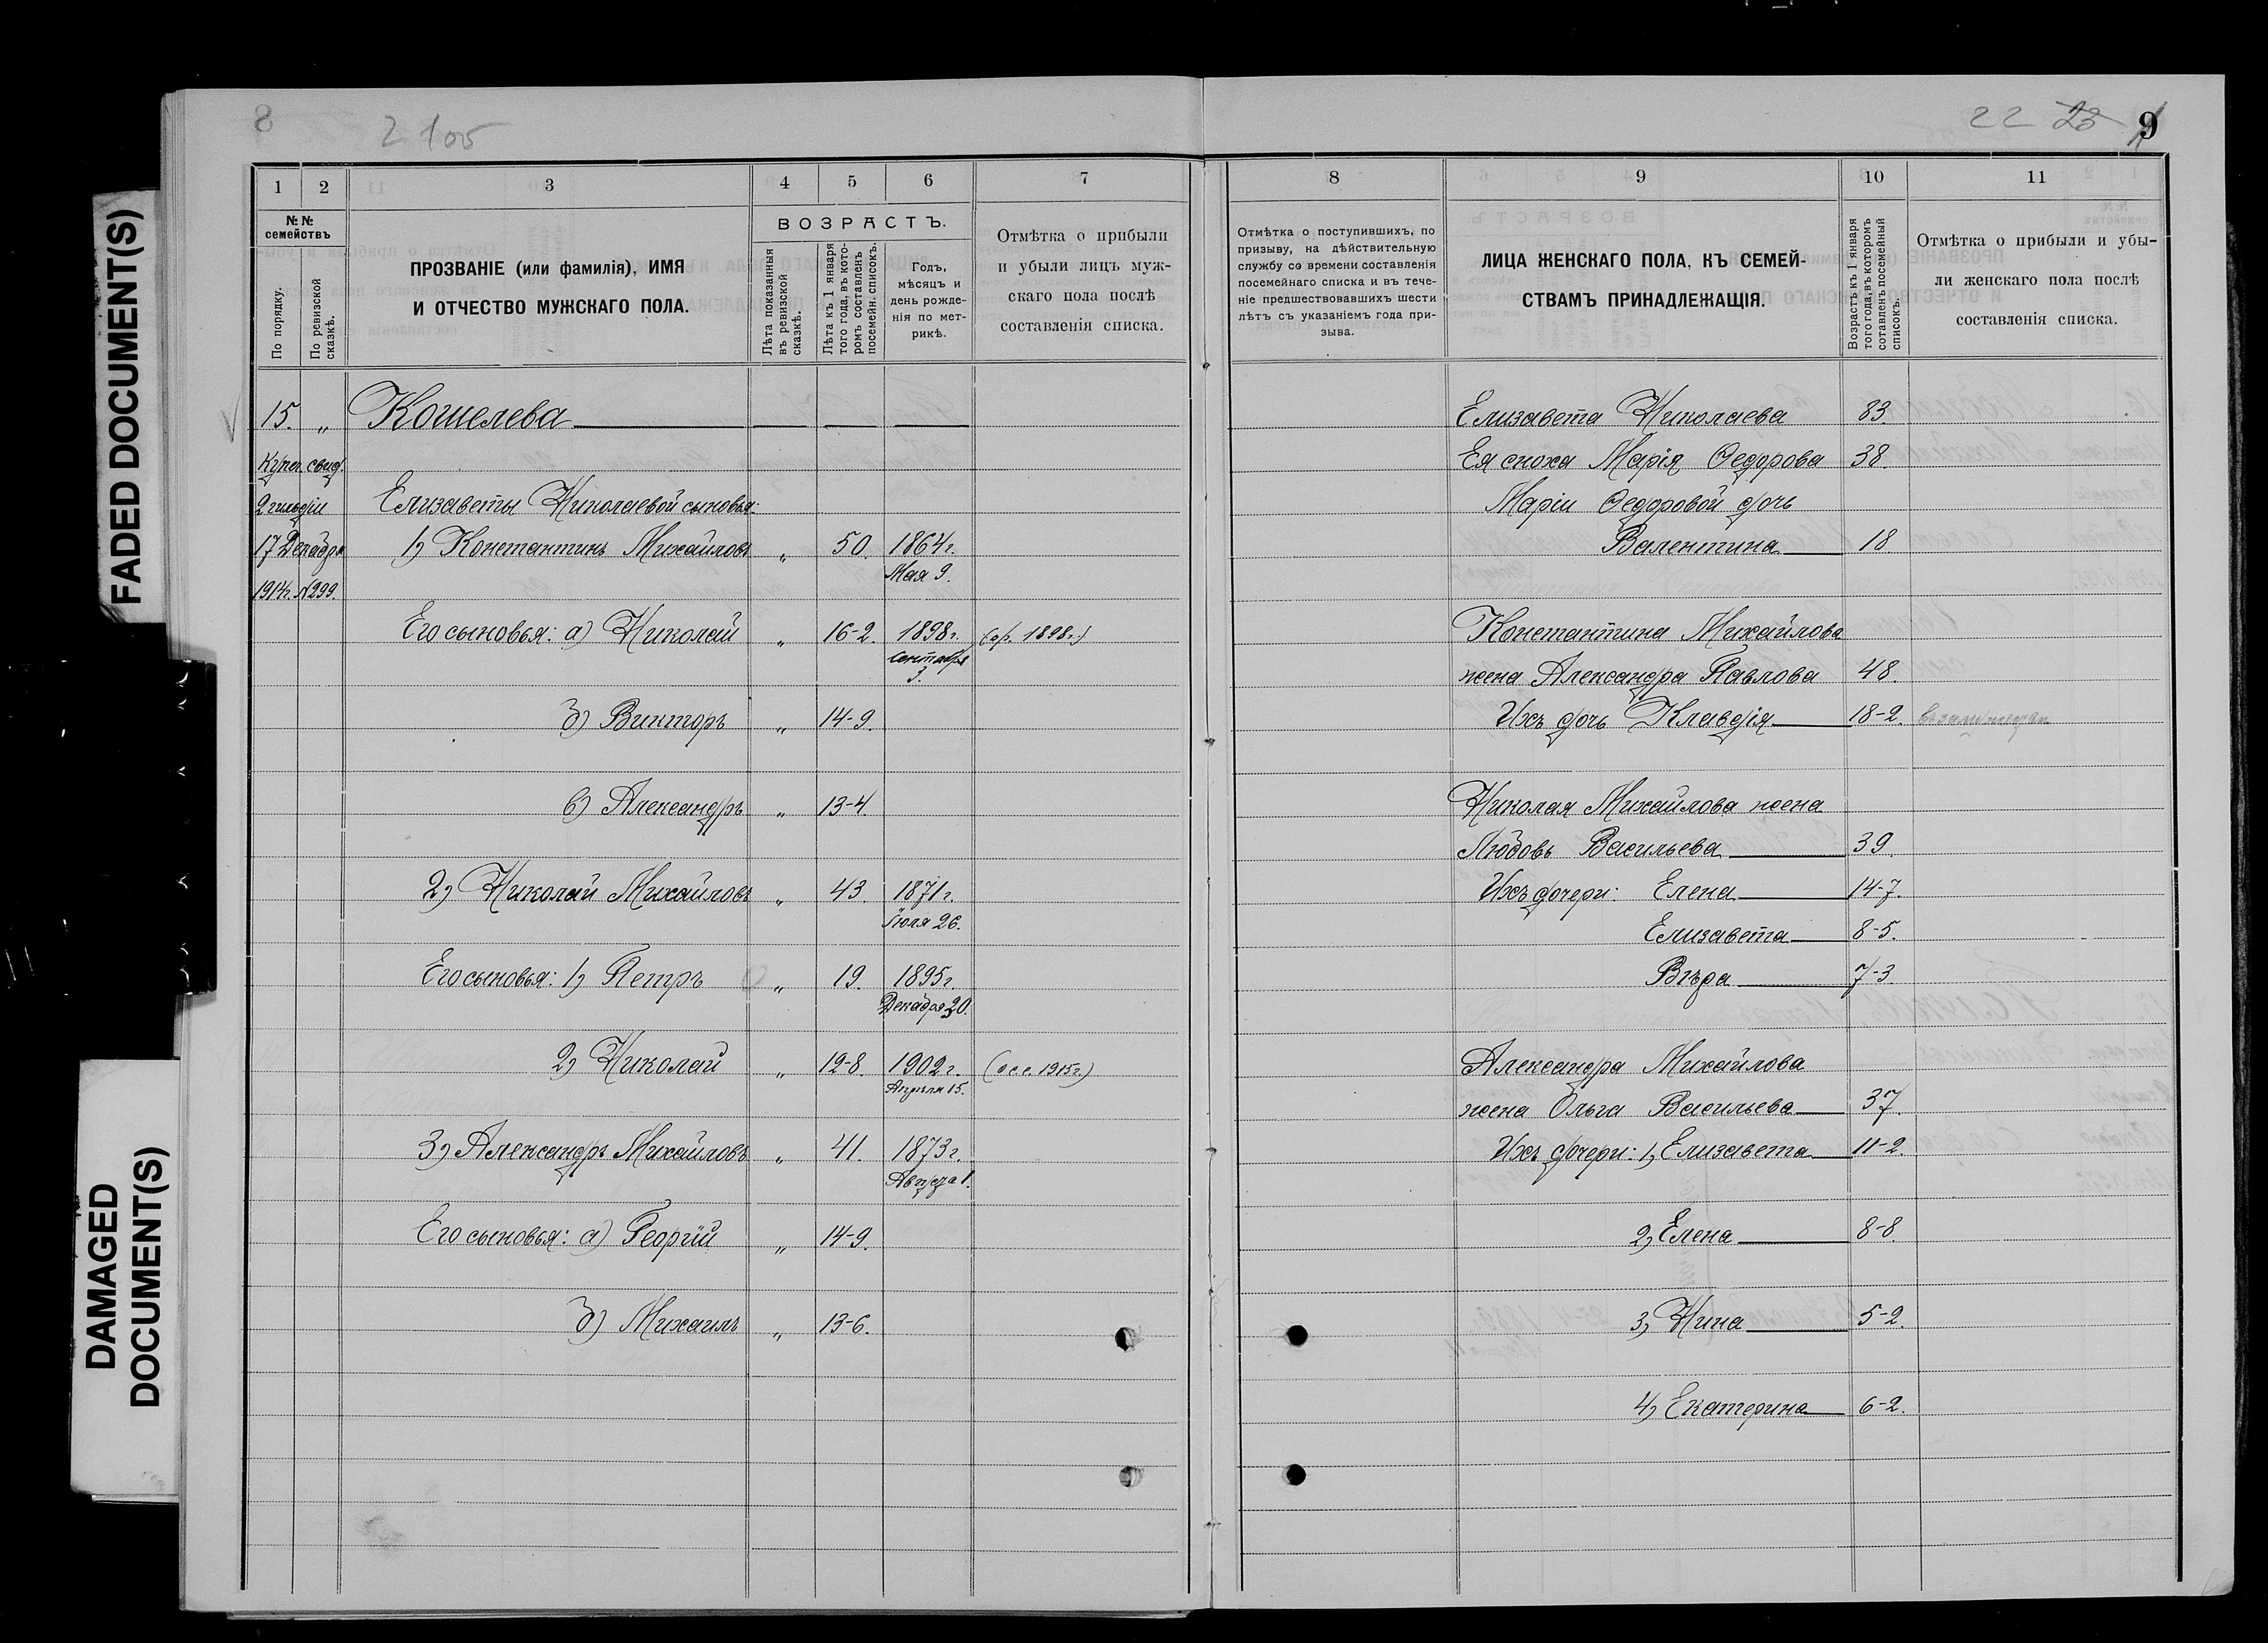 FADED DOCUMENT(S)
DAMAGED
DOCUMENT(S)
8
2 105
1 2 3 4 5 6 7
№ № семействъ
По порядку.
По ревизской сказкѣ.
ПРОЗВАНІЕ (или фамилія), ИМЯ
И ОТЧЕСТВО МУЖСКАГО ПОЛА.
ВОЗРАСТЪ.
Лѣта показанныя въ ревизской сказкѣ.
Лѣта къ 1 января того года, въ которомъ составленъ посемейн. списокъ.
Годъ, мѣсяцъ и день рожденія по метрикѣ.
Отмѣтка о прибыли
и убыли лицъ муж-
скаго пола послѣ
составленія списка.
15. „ Кошелева
Купеч. свид.
2 гильдіи Елизаветы Николаевой сыновья:
17 Декабря 1) Константинъ Михайловъ „ 50. 1864 г.
Мая 9.
1914 г. №299.
Его сыновья: а) Николай „ 16-2. 1898 г. (пр. 1898 г.)
сентября
3.
б) Викторъ „ 14-9.
в) Александръ „ 13-4.
2) Николай Михайловъ „ 43. 1871 г.
Іюля 26.
Его сыновья: 1) Петръ „ 19. 1895 г.
Декабря 20.
2) Николай „ 12-8. 1902 г. (1915 г.)
Апрѣля 15.
3) Александръ Михайловъ „ 41. 1873 г.
Августа 1.
Его сыновья: а) Георгій „ 14-9.
б) Михаилъ „ 13-6.
22 23 9
8 9 10 11
Отмѣтка о поступившихъ, по
призыву, на дѣйствительную
службу со времени составленія
посемейнаго списка и въ тече-
ніе предшествовавшихъ шести
лѣтъ съ указаніемъ года при-
зыва.
ЛИЦА ЖЕНСКАГО ПОЛА, КЪ СЕМЕЙ-
СТВАМЪ ПРИНАДЛЕЖАЩІЯ.
Возрастъ къ 1 января того года, въ которомъ составленъ посемейный списокъ.
Отмѣтка о прибыли и убы-
ли женскаго пола послѣ
составленія списка.
Елизавета Николаева 83.
Ея сноха Марія Ѳедорова 38.
Маріи Ѳедоровой дочь
Валентина 18
Константина Михайлова
жена Александра Павлова 48.
Ихъ дочь Клавдія 18-2. въ замужествѣ
Николая Михайлова жена
Любовь Васильева 39.
Ихъ дочери: Елена 14-7.
Елизавета 8-5.
Вѣра 7-3.
Александра Михайлова
жена Ольга Васильева 37.
Ихъ дочери: 1) Елизавета 11-2.
2) Елена 8-8.
3) Нина 5-2.
4) Екатерина 6-2.